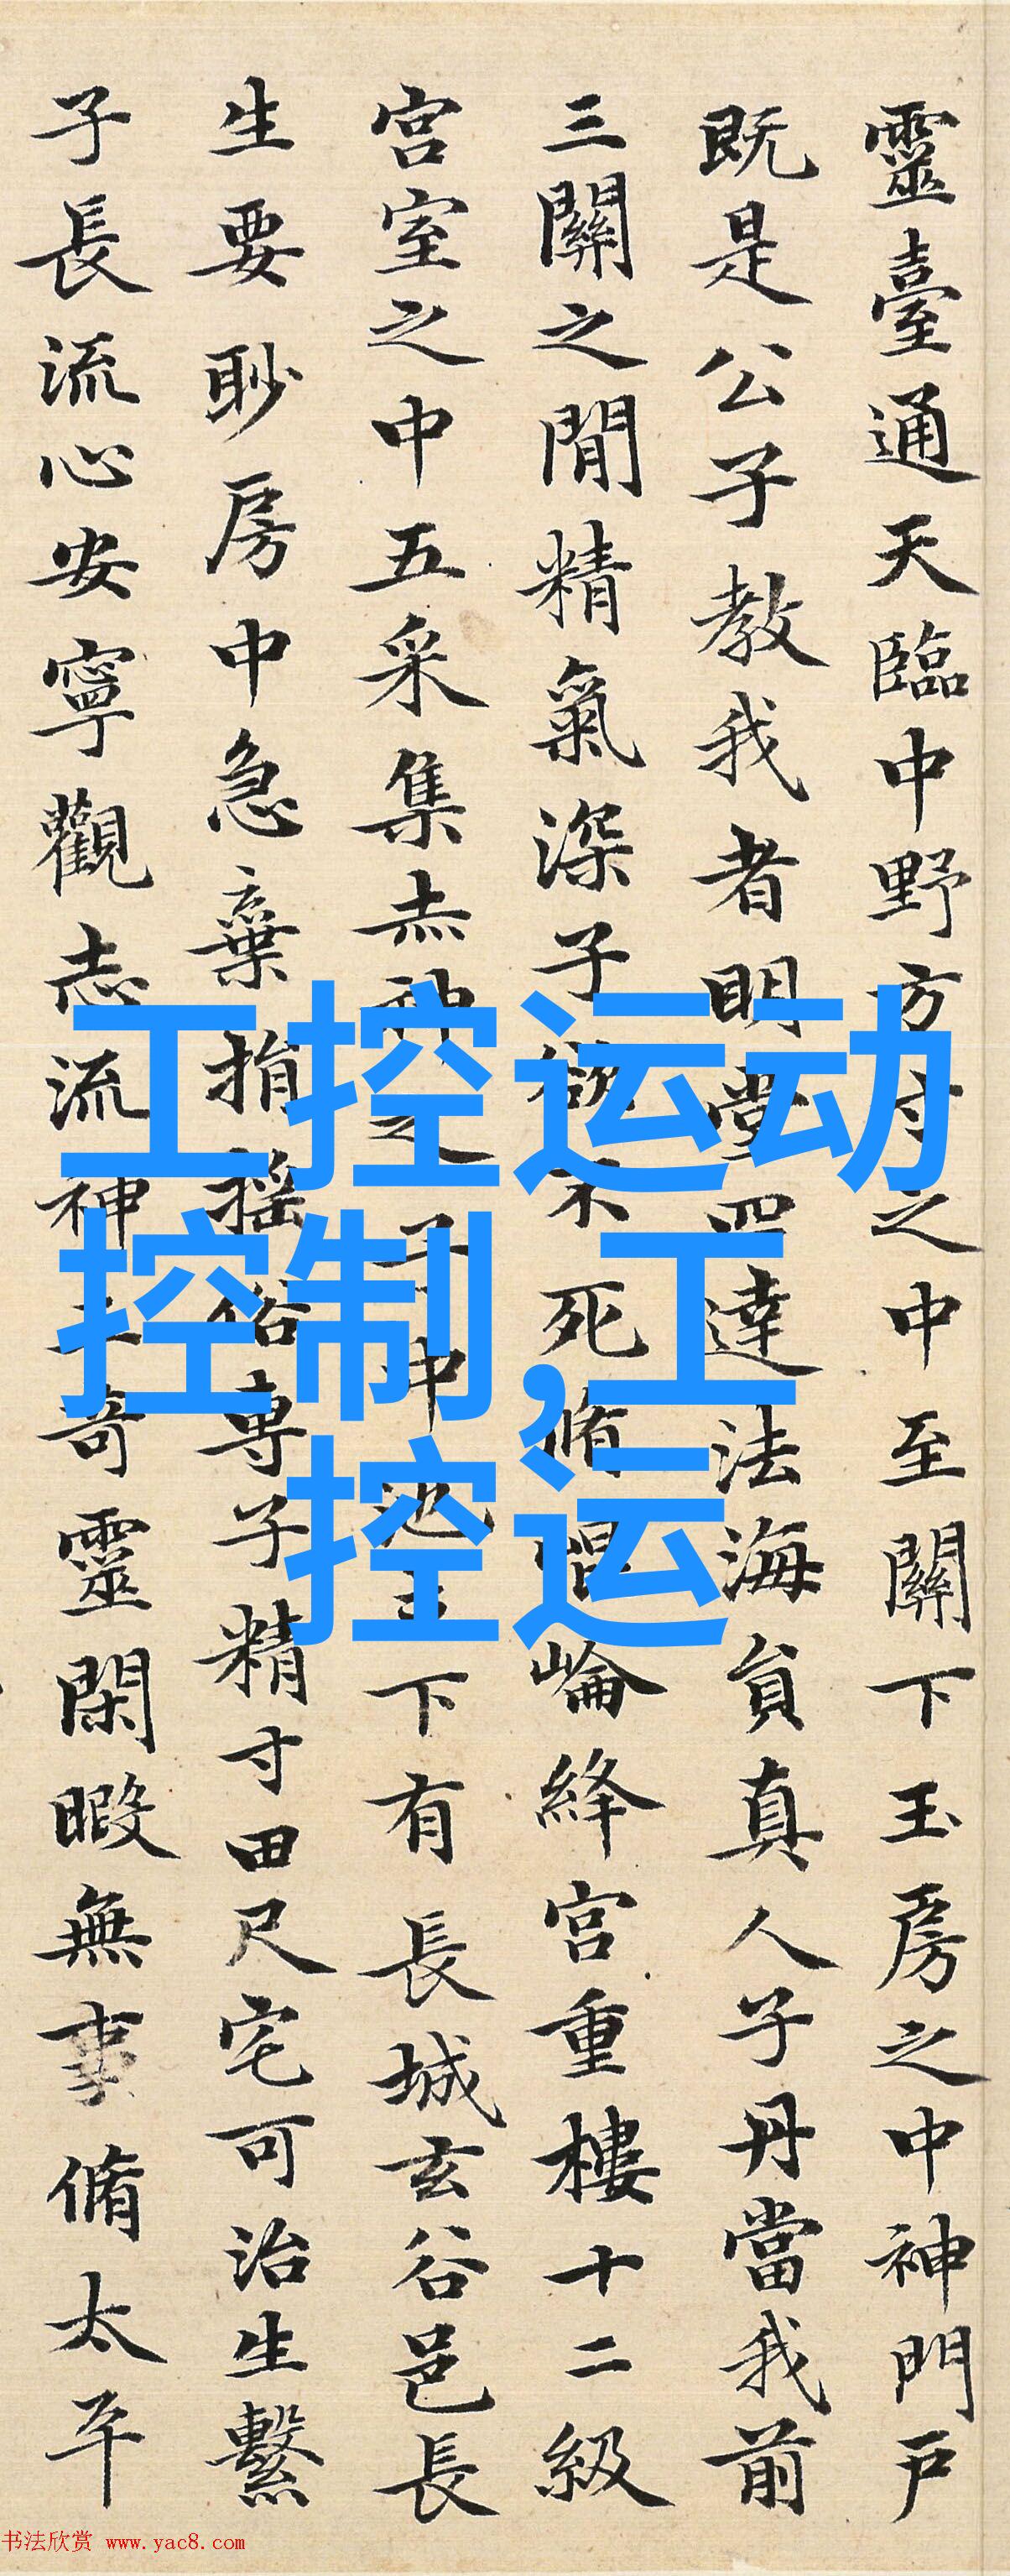 靈臺通天臨中野方寸之中至關下玉房之中神門戶
既是公子教我者明堂四達法海員真人子丹當我前
三關之閒精氣深子欲不死脩崐崘絳宮重樓十二級
宮室之中五采集赤神之子中池立下有長城玄谷邑長
生要眇房中急棄捐搖俗專子精寸田尺宅可治生繫
子長流心安寧觀志流神三奇靈閑暇無事脩太平
工控运动
控制,工
控运
书法欣赏 www.yac8.com